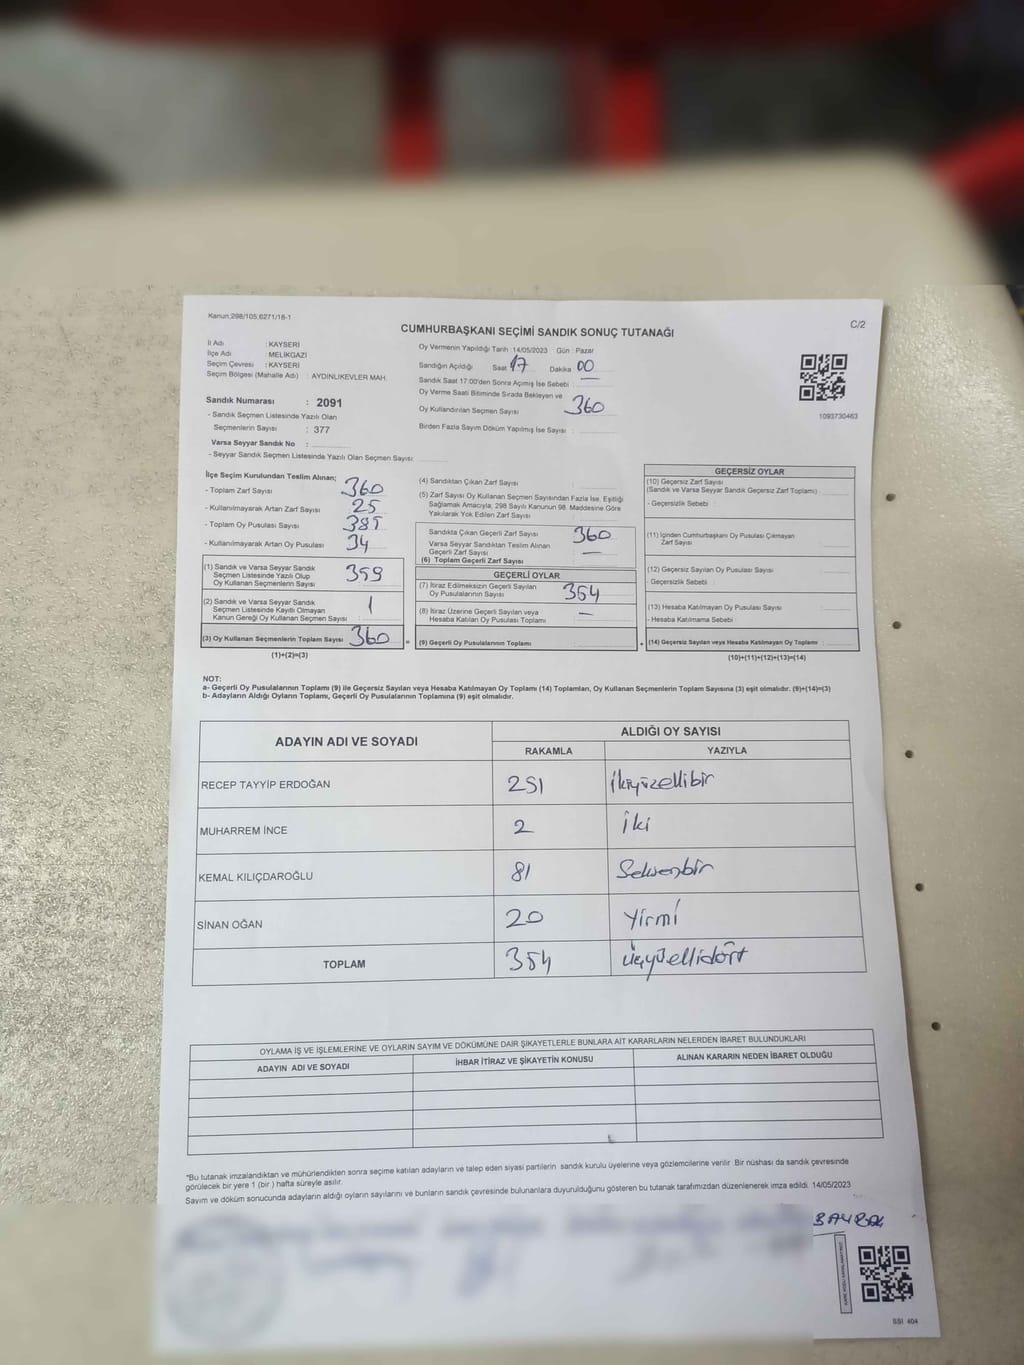 Kanun,298/105,6271/18-1
C/2
CUMHURBAŞKANI SEÇİMİ SANDIK SONUÇ TUTANAĞI
İl Adı : KAYSERİ
İlçe Adı : MELİKGAZİ
Seçim Çevresi : KAYSERİ
Seçim Bölgesi (Mahalle Adı) : AYDINLIKEVLER MAH.
Sandık Numarası : 2091
- Sandık Seçmen Listesinde Yazılı Olan
Seçmenlerin Sayısı : 377
Varsa Seyyar Sandık No :
- Seyyar Sandık Seçmen Listesinde Yazılı Olan Seçmen Sayısı:
Oy Vermenin Yapıldığı Tarih :14/05/2023 Gün : Pazar
Sandığın Açıldığı Saat 17 Dakika 00
Sandık Saat 17.00'den Sonra Açımış İse Sebebi : —
Oy Verme Saati Bitiminde Sırada Bekleyen ve
Oy Kullandırılan Seçmen Sayısı : 360
Birden Fazla Sayım Döküm Yapılmış İse Sayısı :
1093730463
İlçe Seçim Kurulundan Teslim Alınan;
- Toplam Zarf Sayısı 360
- Kullanılmayarak Artan Zarf Sayısı 25
- Toplam Oy Pusulası Sayısı 385
- Kullanılmayarak Artan Oy Pusulası 34
(1) Sandık ve Varsa Seyyar Sandık
Seçmen Listesinde Yazılı Olup
Oy Kullanan Seçmenlerin Sayısı 359
(2) Sandık ve Varsa Seyyar Sandık
Seçmen Listesinde Kayıtlı Olmayan
Kanun Gereği Oy Kullanan Seçmen Sayısı : 1
(3) Oy Kullanan Seçmenlerin Toplam Sayısı 360
(1)+(2)=(3)
(4) Sandıktan Çıkan Zarf Sayısı :
(5) Zarf Sayısı Oy Kullanan Seçmen Sayısından Fazla İse, Eşitliği
Sağlamak Amacıyla, 298 Sayılı Kanunun 98. Maddesine Göre
Yakılarak Yok Edilen Zarf Sayısı :
Sandıkta Çıkan Geçerli Zarf Sayısı : 360
Varsa Seyyar Sandıktan Teslim Alınan
Geçerli Zarf Sayısı : —
(6) Toplam Geçerli Zarf Sayısı :
GEÇERLİ OYLAR
(7) İtiraz Edilmeksizin Geçerli Sayılan
Oy Pusulalarının Sayısı : 354
(8) İtiraz Üzerine Geçerli Sayılan veya
Hesaba Katılan Oy Pusulası Toplamı : —
= (9) Geçerli Oy Pusulalarının Toplamı :
GEÇERSİZ OYLAR
(10) Geçersiz Zarf Sayısı
(Sandık ve Varsa Seyyar Sandık Geçersiz Zarf Toplamı) :
- Geçersizlik Sebebi :
(11) İçinden Cumhurbaşkanı Oy Pusulası Çıkmayan
Zarf Sayısı :
(12) Geçersiz Sayılan Oy Pusulası Sayısı :
- Geçersizlik Sebebi :
(13) Hesaba Katılmayan Oy Pusulası Sayısı :
- Hesaba Katılmama Sebebi :
+ (14) Geçersiz Sayılan veya Hesaba Katılmayan Oy Toplamı :
(10)+(11)+(12)+(13)=(14)
NOT:
a- Geçerli Oy Pusulalarının Toplamı (9) ile Geçersiz Sayılan veya Hesaba Katılmayan Oy Toplamı (14) Toplamları, Oy Kullanan Seçmenlerin Toplam Sayısına (3) eşit olmalıdır. (9)+(14)=(3)
b- Adayların Aldığı Oyların Toplamı, Geçerli Oy Pusulalarının Toplamına (9) eşit olmalıdır.
ADAYIN ADI VE SOYADI
ALDIĞI OY SAYISI
RAKAMLA YAZIYLA
RECEP TAYYİP ERDOĞAN 251 ikiyüzellibir
MUHARREM İNCE 2 iki
KEMAL KILIÇDAROĞLU 81 Seksenbir
SİNAN OĞAN 20 Yirmi
TOPLAM 354 üçyüzellidört
OYLAMA İŞ VE İŞLEMLERİNE VE OYLARIN SAYIM VE DÖKÜMÜNE DAİR ŞİKAYETLERLE BUNLARA AİT KARARLARIN NELERDEN İBARET BULUNDUKLARI
ADAYIN ADI VE SOYADI İHBAR İTİRAZ VE ŞİKAYETİN KONUSU ALINAN KARARIN NEDEN İBARET OLDUĞU
*Bu tutanak imzalandıktan ve mühürlendikten sonra seçime katılan adayların ve talep eden siyasi partilerin sandık kurulu üyelerine veya gözlemcilerine verilir. Bir nüshası da sandık çevresinde
görülecek bir yere 1 (bir ) hafta süreyle asılır.
Sayım ve döküm sonucunda adayların aldığı oyların sayılarını ve bunların sandık çevresinde bulunanlara duyurulduğunu gösteren bu tutanak tarafımızdan düzenlenerek imza edildi. 14/05/2023
SSI 404